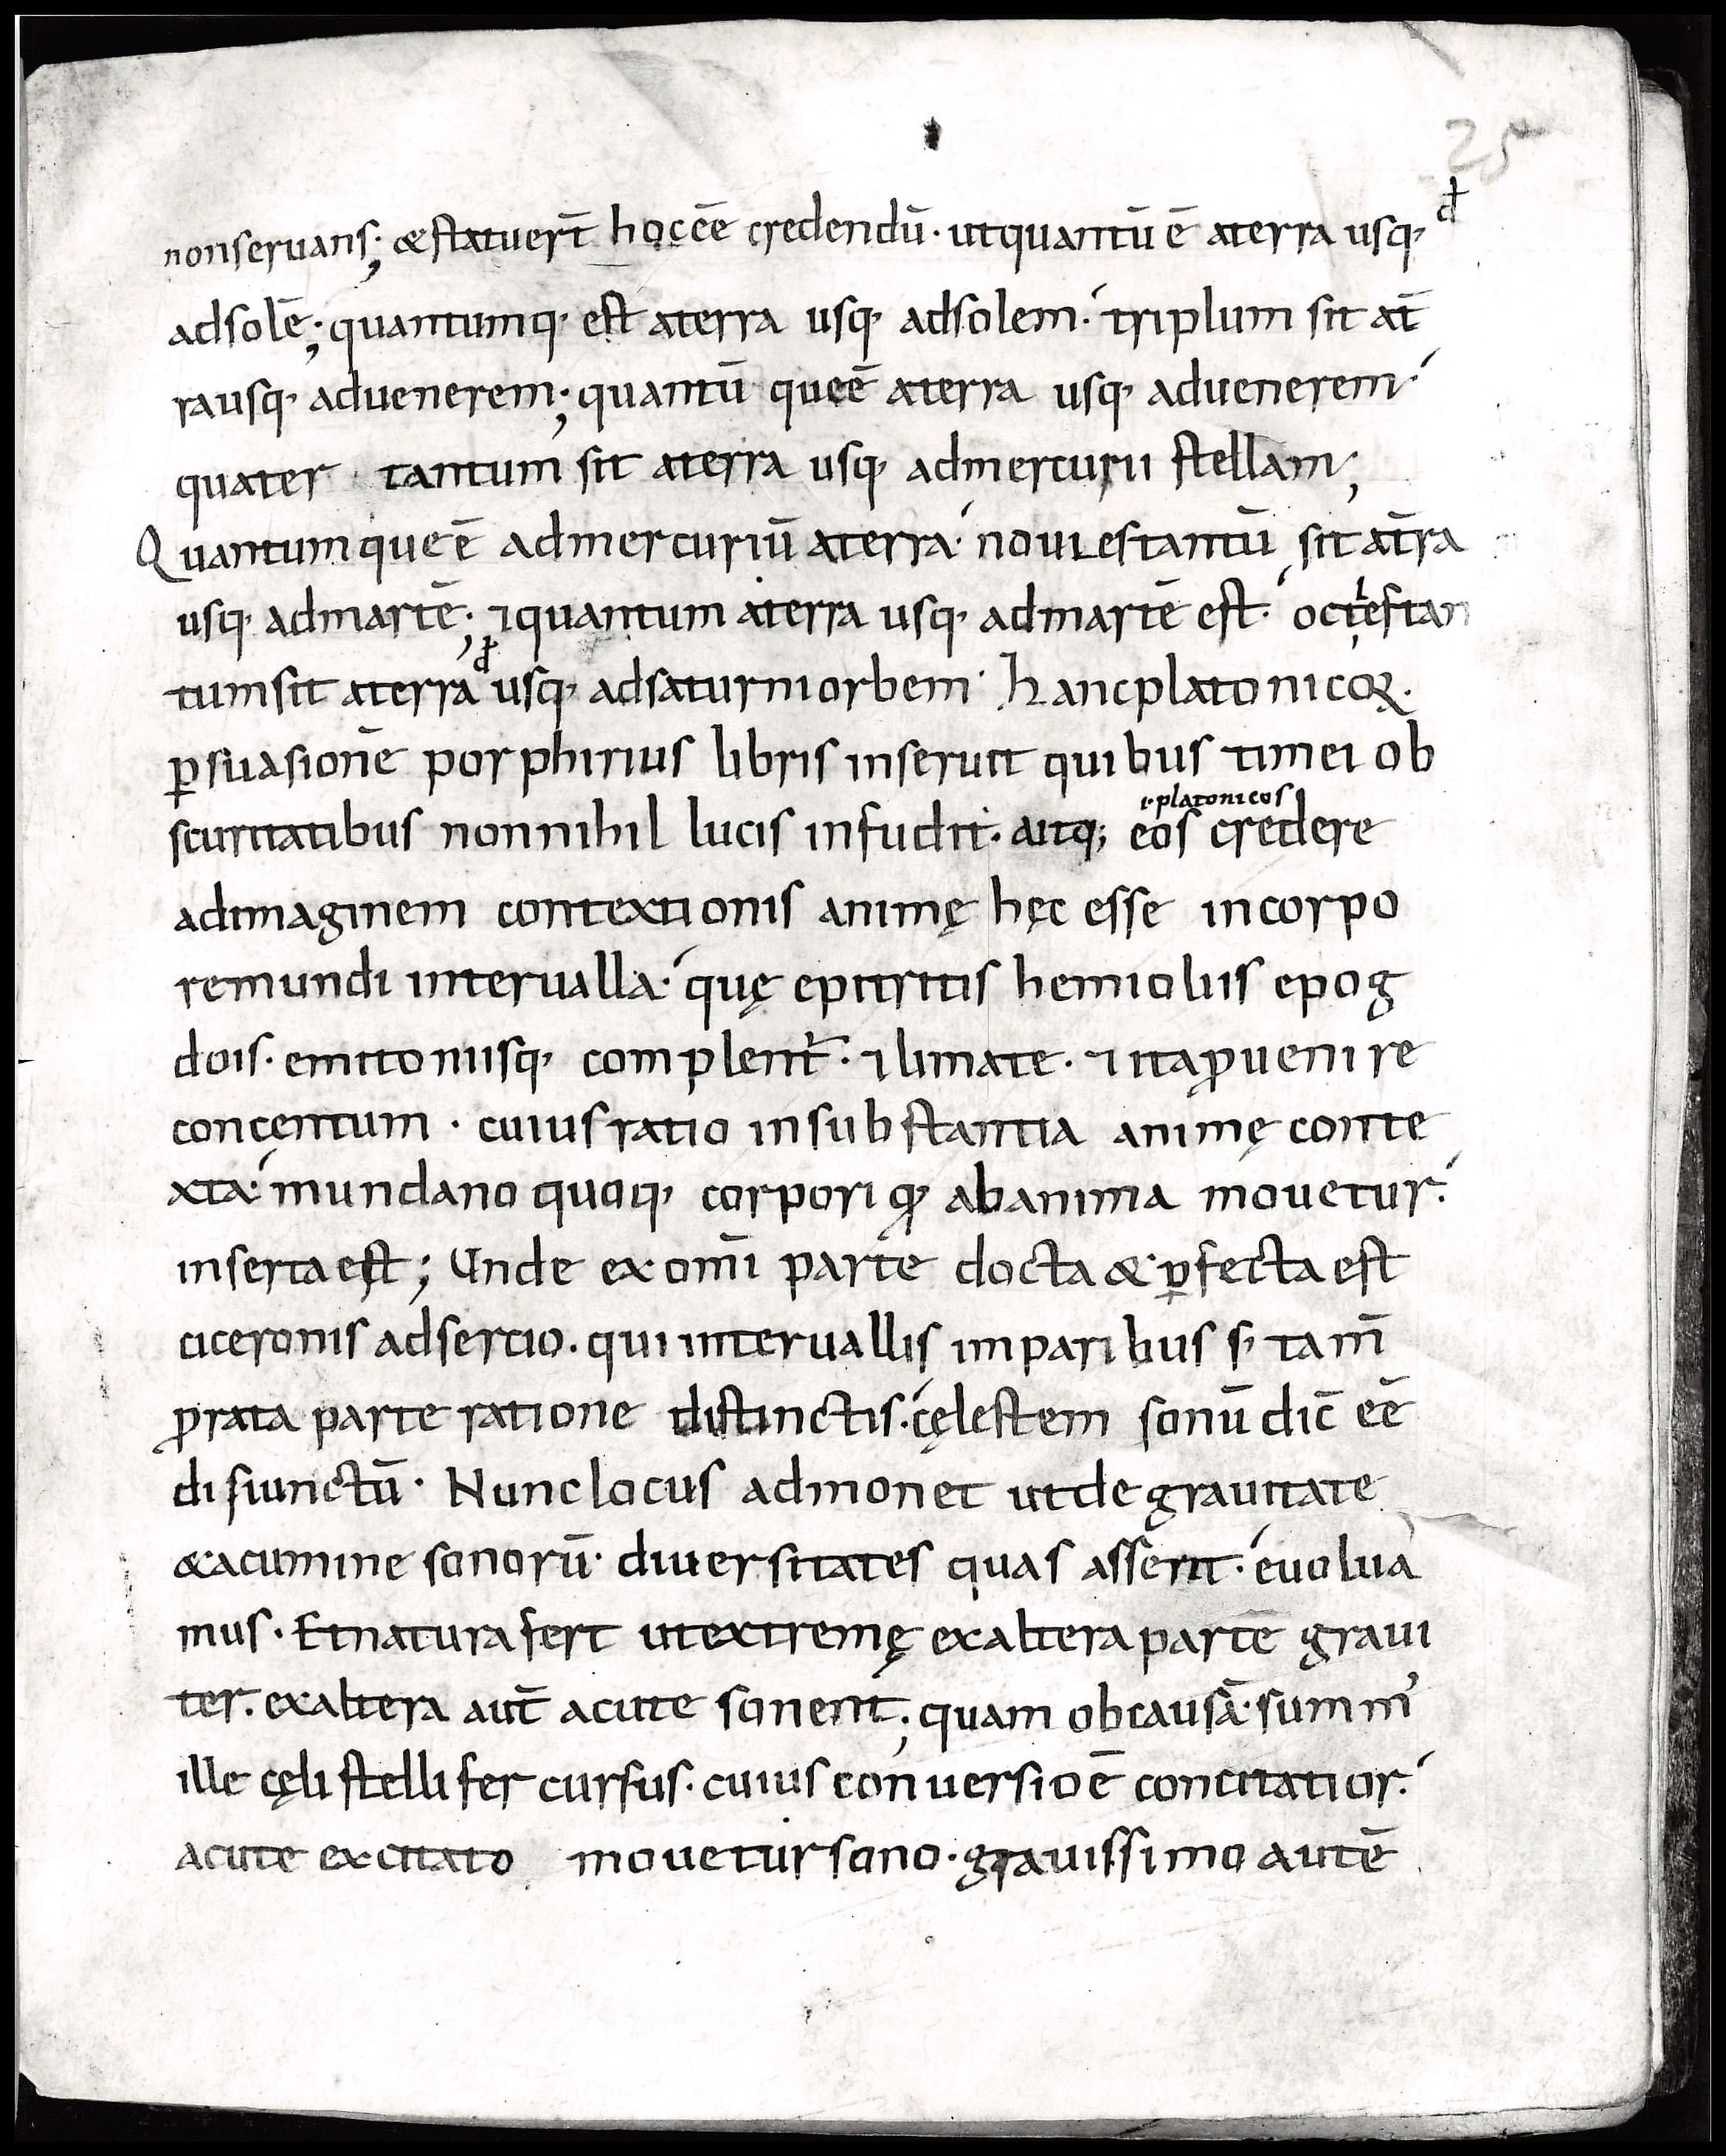 25
nonseruans; & statuert̄ hoc ēē credendū· utquantū ē aterra usq· đ
adsolē; quantumq· est aterra usq· adsolem·́ triplum sit at̄
rausq· aduenerem; quantū que ē aterra usq· aduenerem·́
quater tantum sit aterra usq· admercurii stellam;
Quantumque ē admercuriū aterra·́ nouiestantū sit at̄ra
usq· admartē; ⁊quantum aterra usq· admartē est·́ octiestan
tumsit aterra đ usq· adsaturniorbem· hancplatonicoꝝ·
ꝑsuasionē porphirius libris inseruit quibus timei ob
scuritatibus nonnihil lucis infudit· aitq; eos credere
·i·platonicos
adimaginem contextionis animę hęc esse incorpo
remundi interualla·́ quę epitritis hemioliis epog
dois· emitoniisq· complent᷒· ⁊limate· ⁊ itaꝓuenire
concentum· cuiusratio insubstantia animę conte
xta·́ mundano quoq· corpori ꝙ abanima mouetur·́
insertaest; Unde ex om̄i parte docta & ꝑfectaest
ciceronis adsertio· qui interuallis imparibus s· tam̄
ꝓrata parte ratione distinctis·́ cęlestem sonū dic̄ ēē
disiunctū· Nunclocus admonet utde grauitate
&acumine sonorū· diuersitates quas asserit·́ euolua
mus· Etnaturafert utextremę exaltera parte graui
ter· exaltera aut̄ acute sonent; quam obcausā· summ᾿
ille cęli stellifer cursus· cuius conuersio ē concitatior·́
acute excitato mouetur sono· grauissimo autē